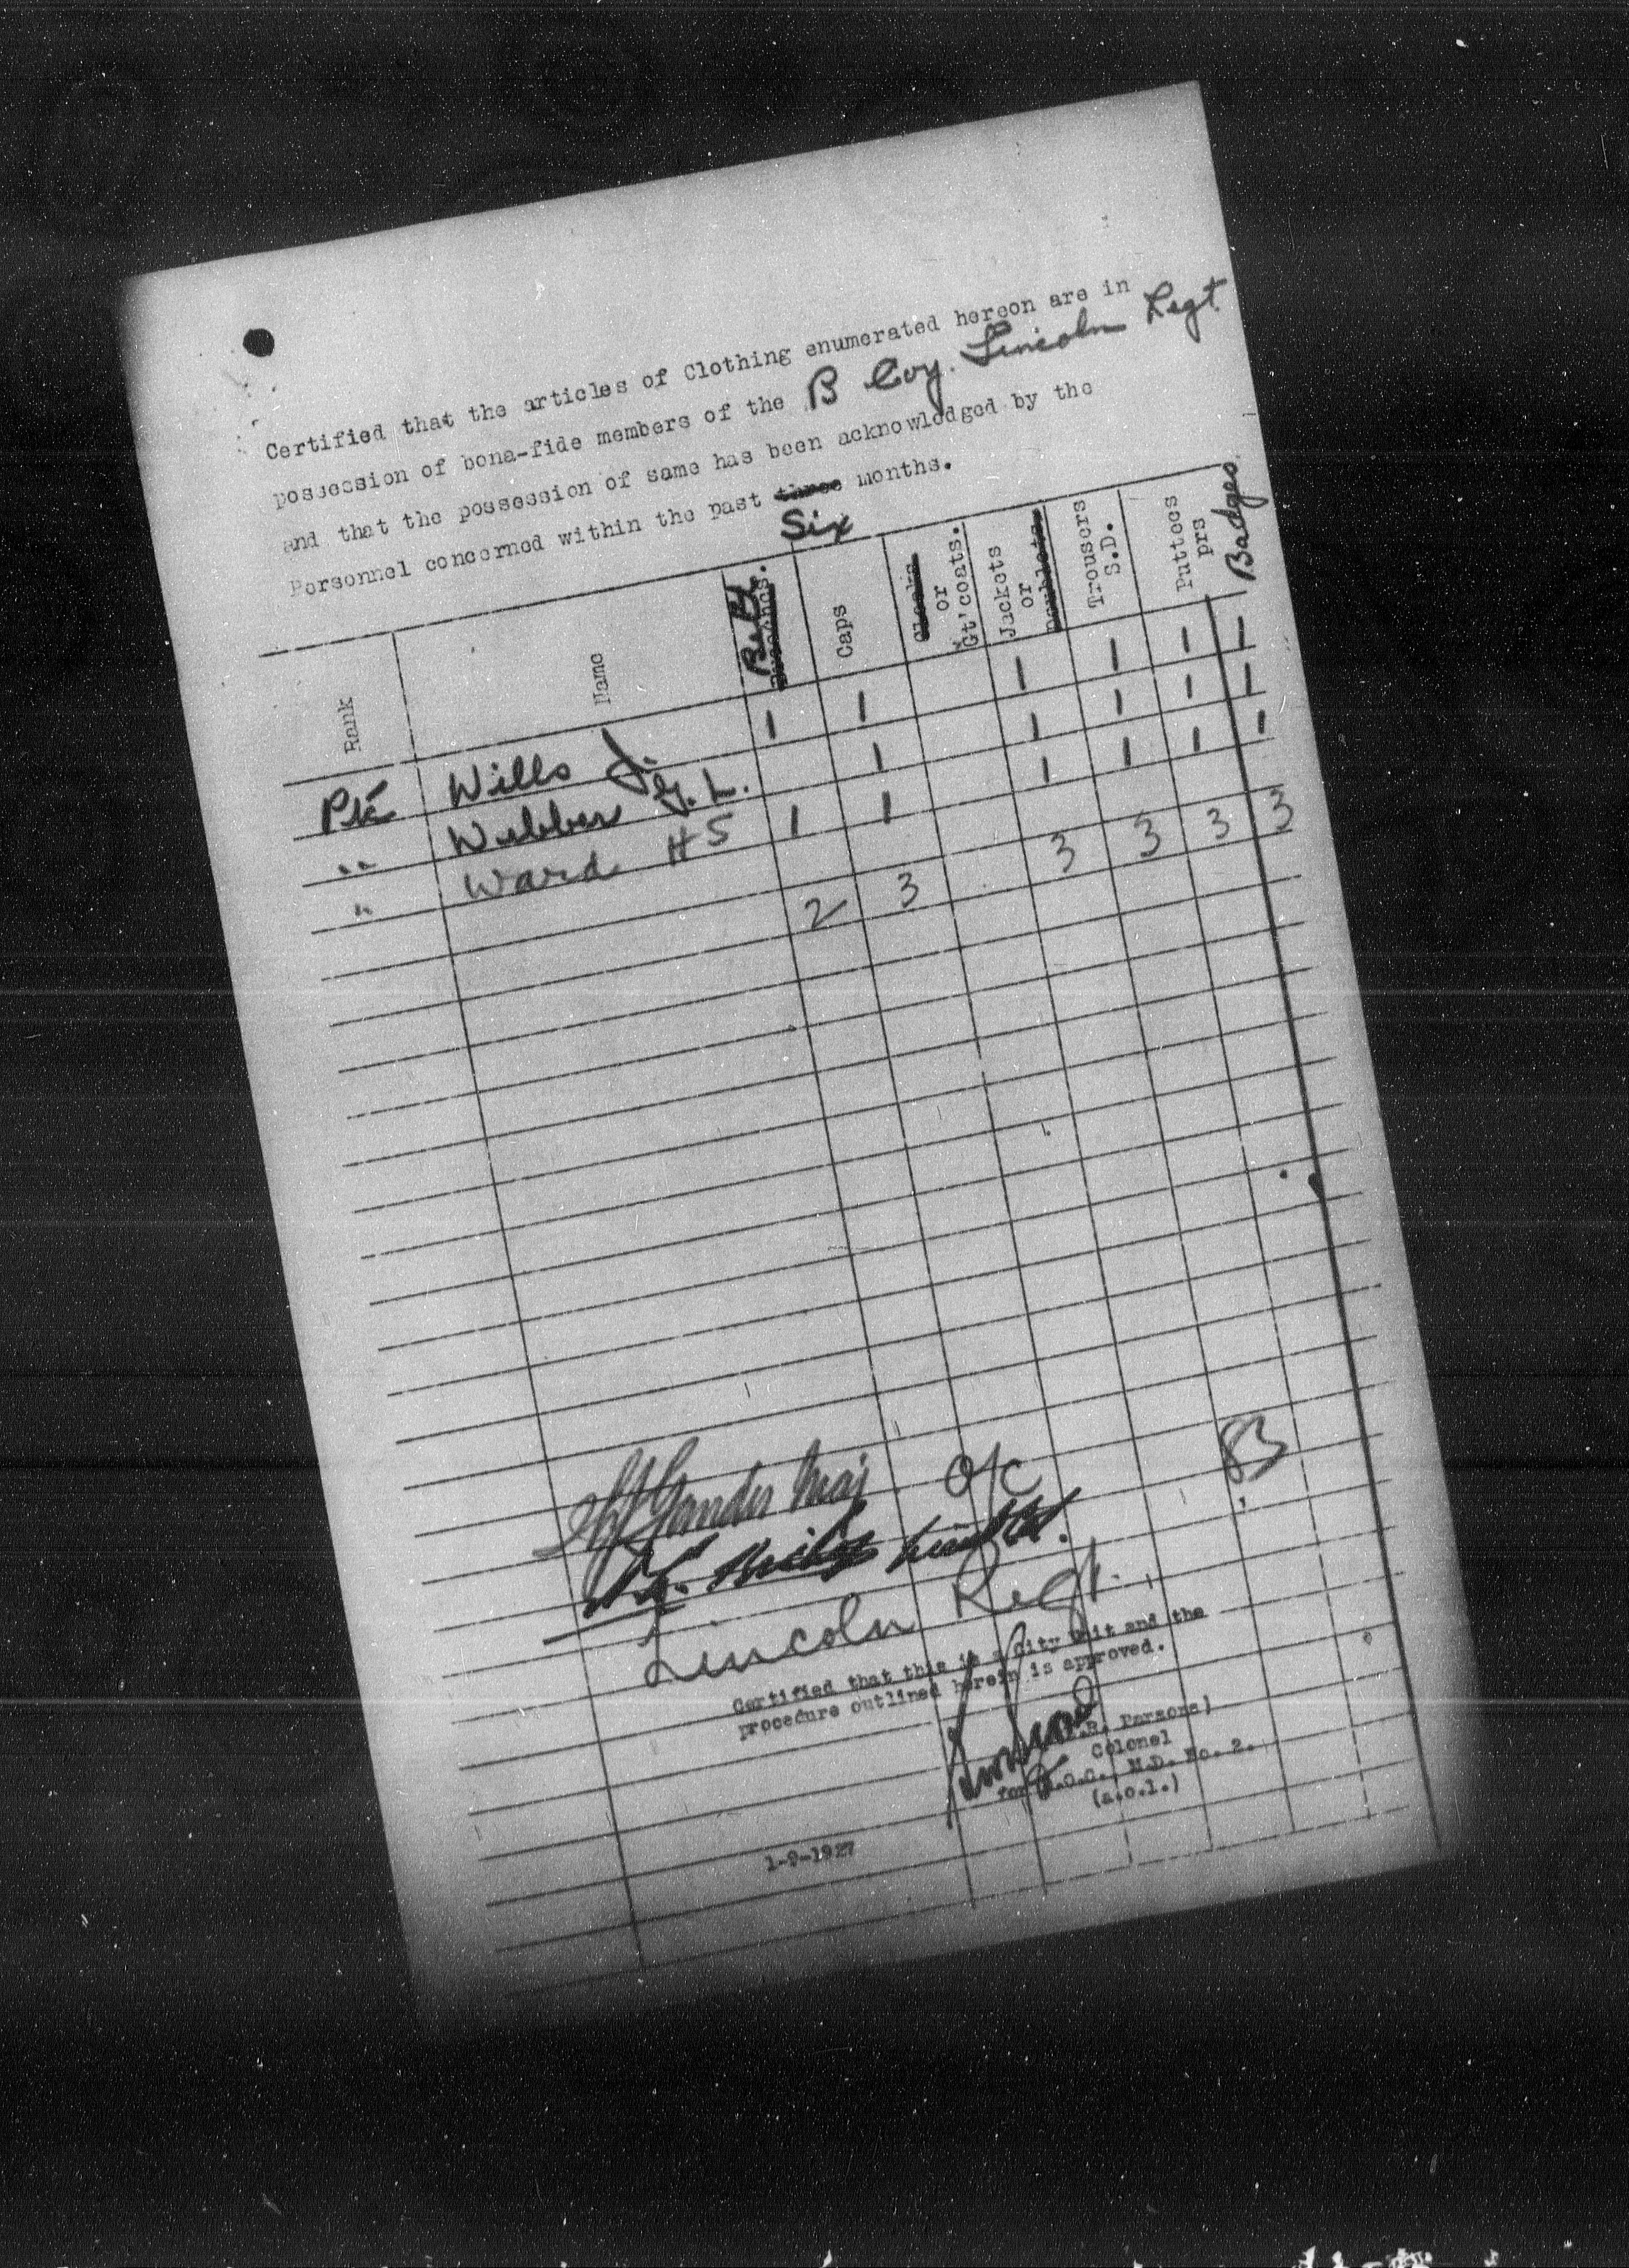 Certified that the articles of Clothing enumerated hereon are in
possession of bona-fide members of the B Coy. Lincoln Regt.
and that the possession of same has been acknowledged by the
Personnel concerned within the past three months.
Six
Rank Name Belts Caps Cloaks or Gt'coats. Jackets or Doublets Trousers S.D. Puttees prs Badges
Pte Wills J. 1 1 1 1 1 1
" Webber G. L. 1 1 1 1 1
" Ward H S 1 1 1 1 1 1
2 3 3 3 3 3
Maj O/C
83
Lincoln Regt.
Certified that this is a City Unit and the
procedure outlined herein is approved.
R. Parsons)
Colonel
for D.O.C., M.D. No. 2.
(a.o.l.)
1-9-1927